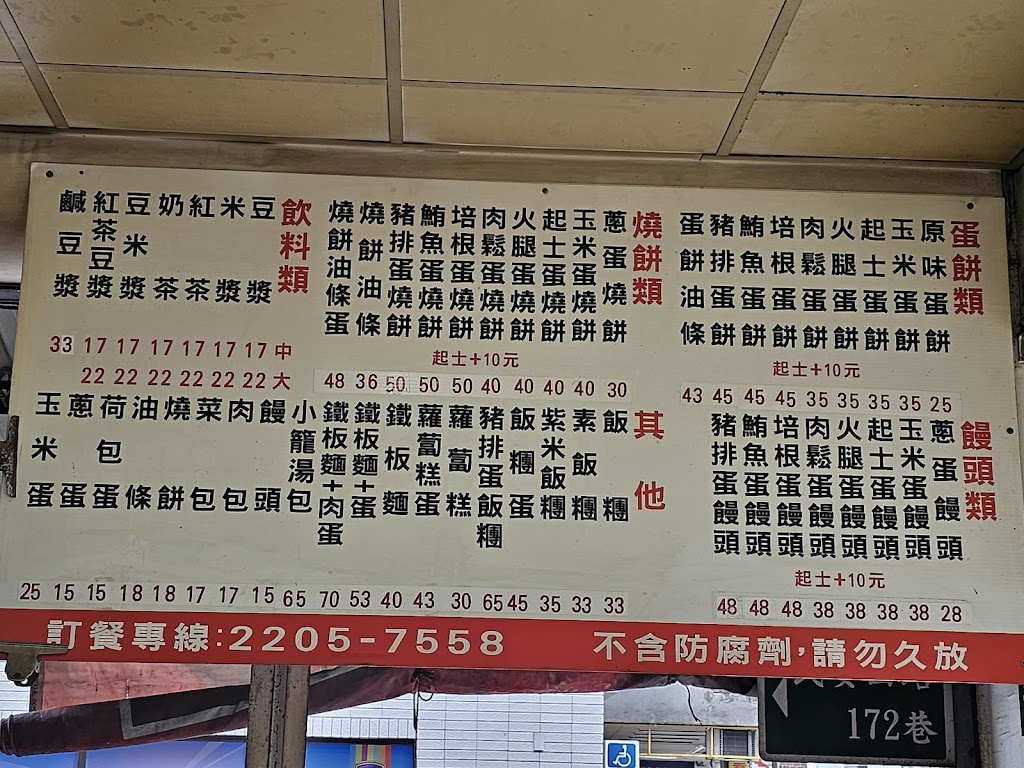 蛋餅類
原味蛋餅
玉米蛋餅
起士蛋餅
火腿蛋餅
肉鬆蛋餅
培根蛋餅
鮪魚蛋餅
豬排蛋餅
蛋餅油條
起士+10元
43 45 45 45 35 35 35 35 25
燒餅類
蔥蛋燒餅
玉米蛋燒餅
起士蛋燒餅
火腿蛋燒餅
肉鬆蛋燒餅
培根蛋燒餅
鮪魚蛋燒餅
豬排蛋燒餅
燒餅油條
燒餅油條蛋
起士+10元
48 36 50 50 50 40 40 40 40 30
飲料類
豆漿
米漿
紅茶
奶茶
豆米漿
紅茶豆漿
鹹豆漿
33 17 17 17 17 17 17 中
22 22 22 22 22 22 大
饅頭類
蔥蛋饅頭
玉米蛋饅頭
起士蛋饅頭
火腿蛋饅頭
肉鬆蛋饅頭
培根蛋饅頭
鮪魚蛋饅頭
豬排蛋饅頭
起士+10元
48 48 48 38 38 38 38 28
其他
飯糰
素飯糰
紫米飯糰
飯糰蛋
豬排蛋飯糰
蘿蔔糕
蘿蔔糕蛋
鐵板麵
鐵板麵+蛋
鐵板麵+肉蛋
小籠湯包
饅頭
肉包
菜包
燒餅
油條
荷包蛋
蔥蛋
玉米蛋
25 15 15 18 18 17 17 15 65 70 53 40 43 30 65 45 35 33 33
訂餐專線:2205-7558
不含防腐劑,請勿久放
172巷